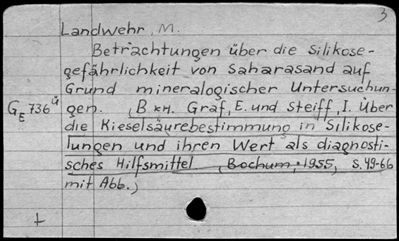 3
Landwehr, M.
Betrachtungen über die Silikose-
gefährlichkeit von Saharasand auf
Grund mineralogischer Untersuchun-
GE 736ü gen. (В кн. Graf, E. und Steiff, I. Über
die Kieselsäurebestimmung in Silikose-
lungen und ihren Wert als diagnosti-
sches Hilfsmittel, Bochum, 1955, S. 49-66
mit Abb.)
+